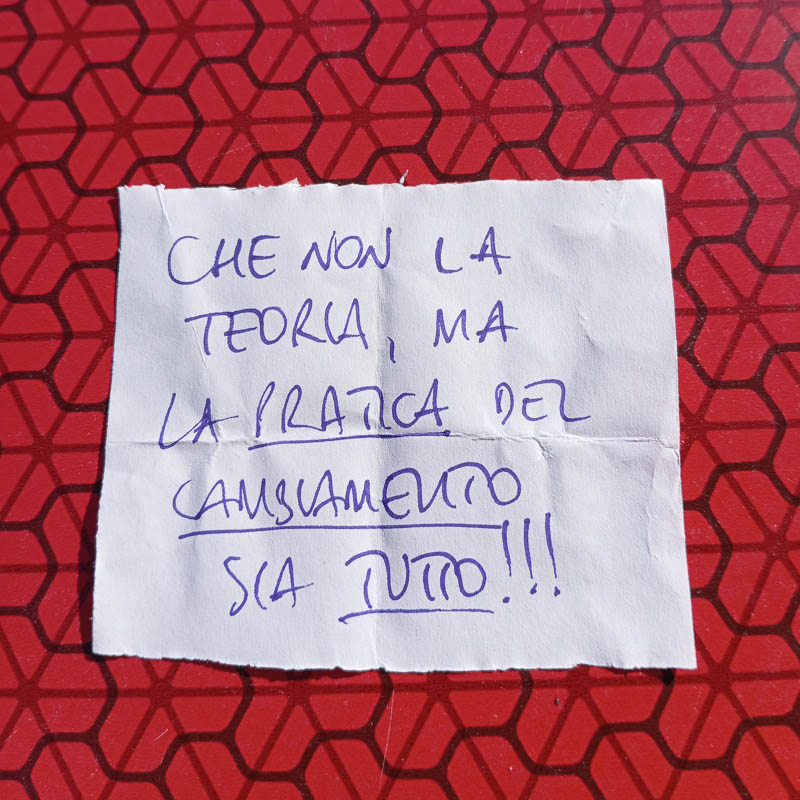 CHE NON LA
TEORIA, MA
LA PRATICA DEL
CAMBIAMENTO
SIA TUTTO!!!